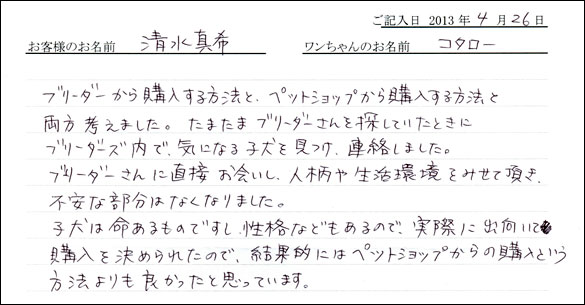 ご記入日 2013 年 4 月 26 日
お客様のお名前 清水真希 ワンちゃんのお名前 コタロー
ブリーダーから購入する方法と、ペットショップから購入する方法と
両方考えました。たまたまブリーダーさんを探していたときに
ブリーダーズ内で、気になる子犬を見つけ、連絡しました。
ブリーダーさんに直接お会いし、人柄や生活環境をみせて頂き、
不安な部分はなくなりました。
子犬は命あるものですし、性格などもあるので、実際に出向いて
購入を決められたので、結果的にはペットショップからの購入という
方法よりも良かったと思っています。